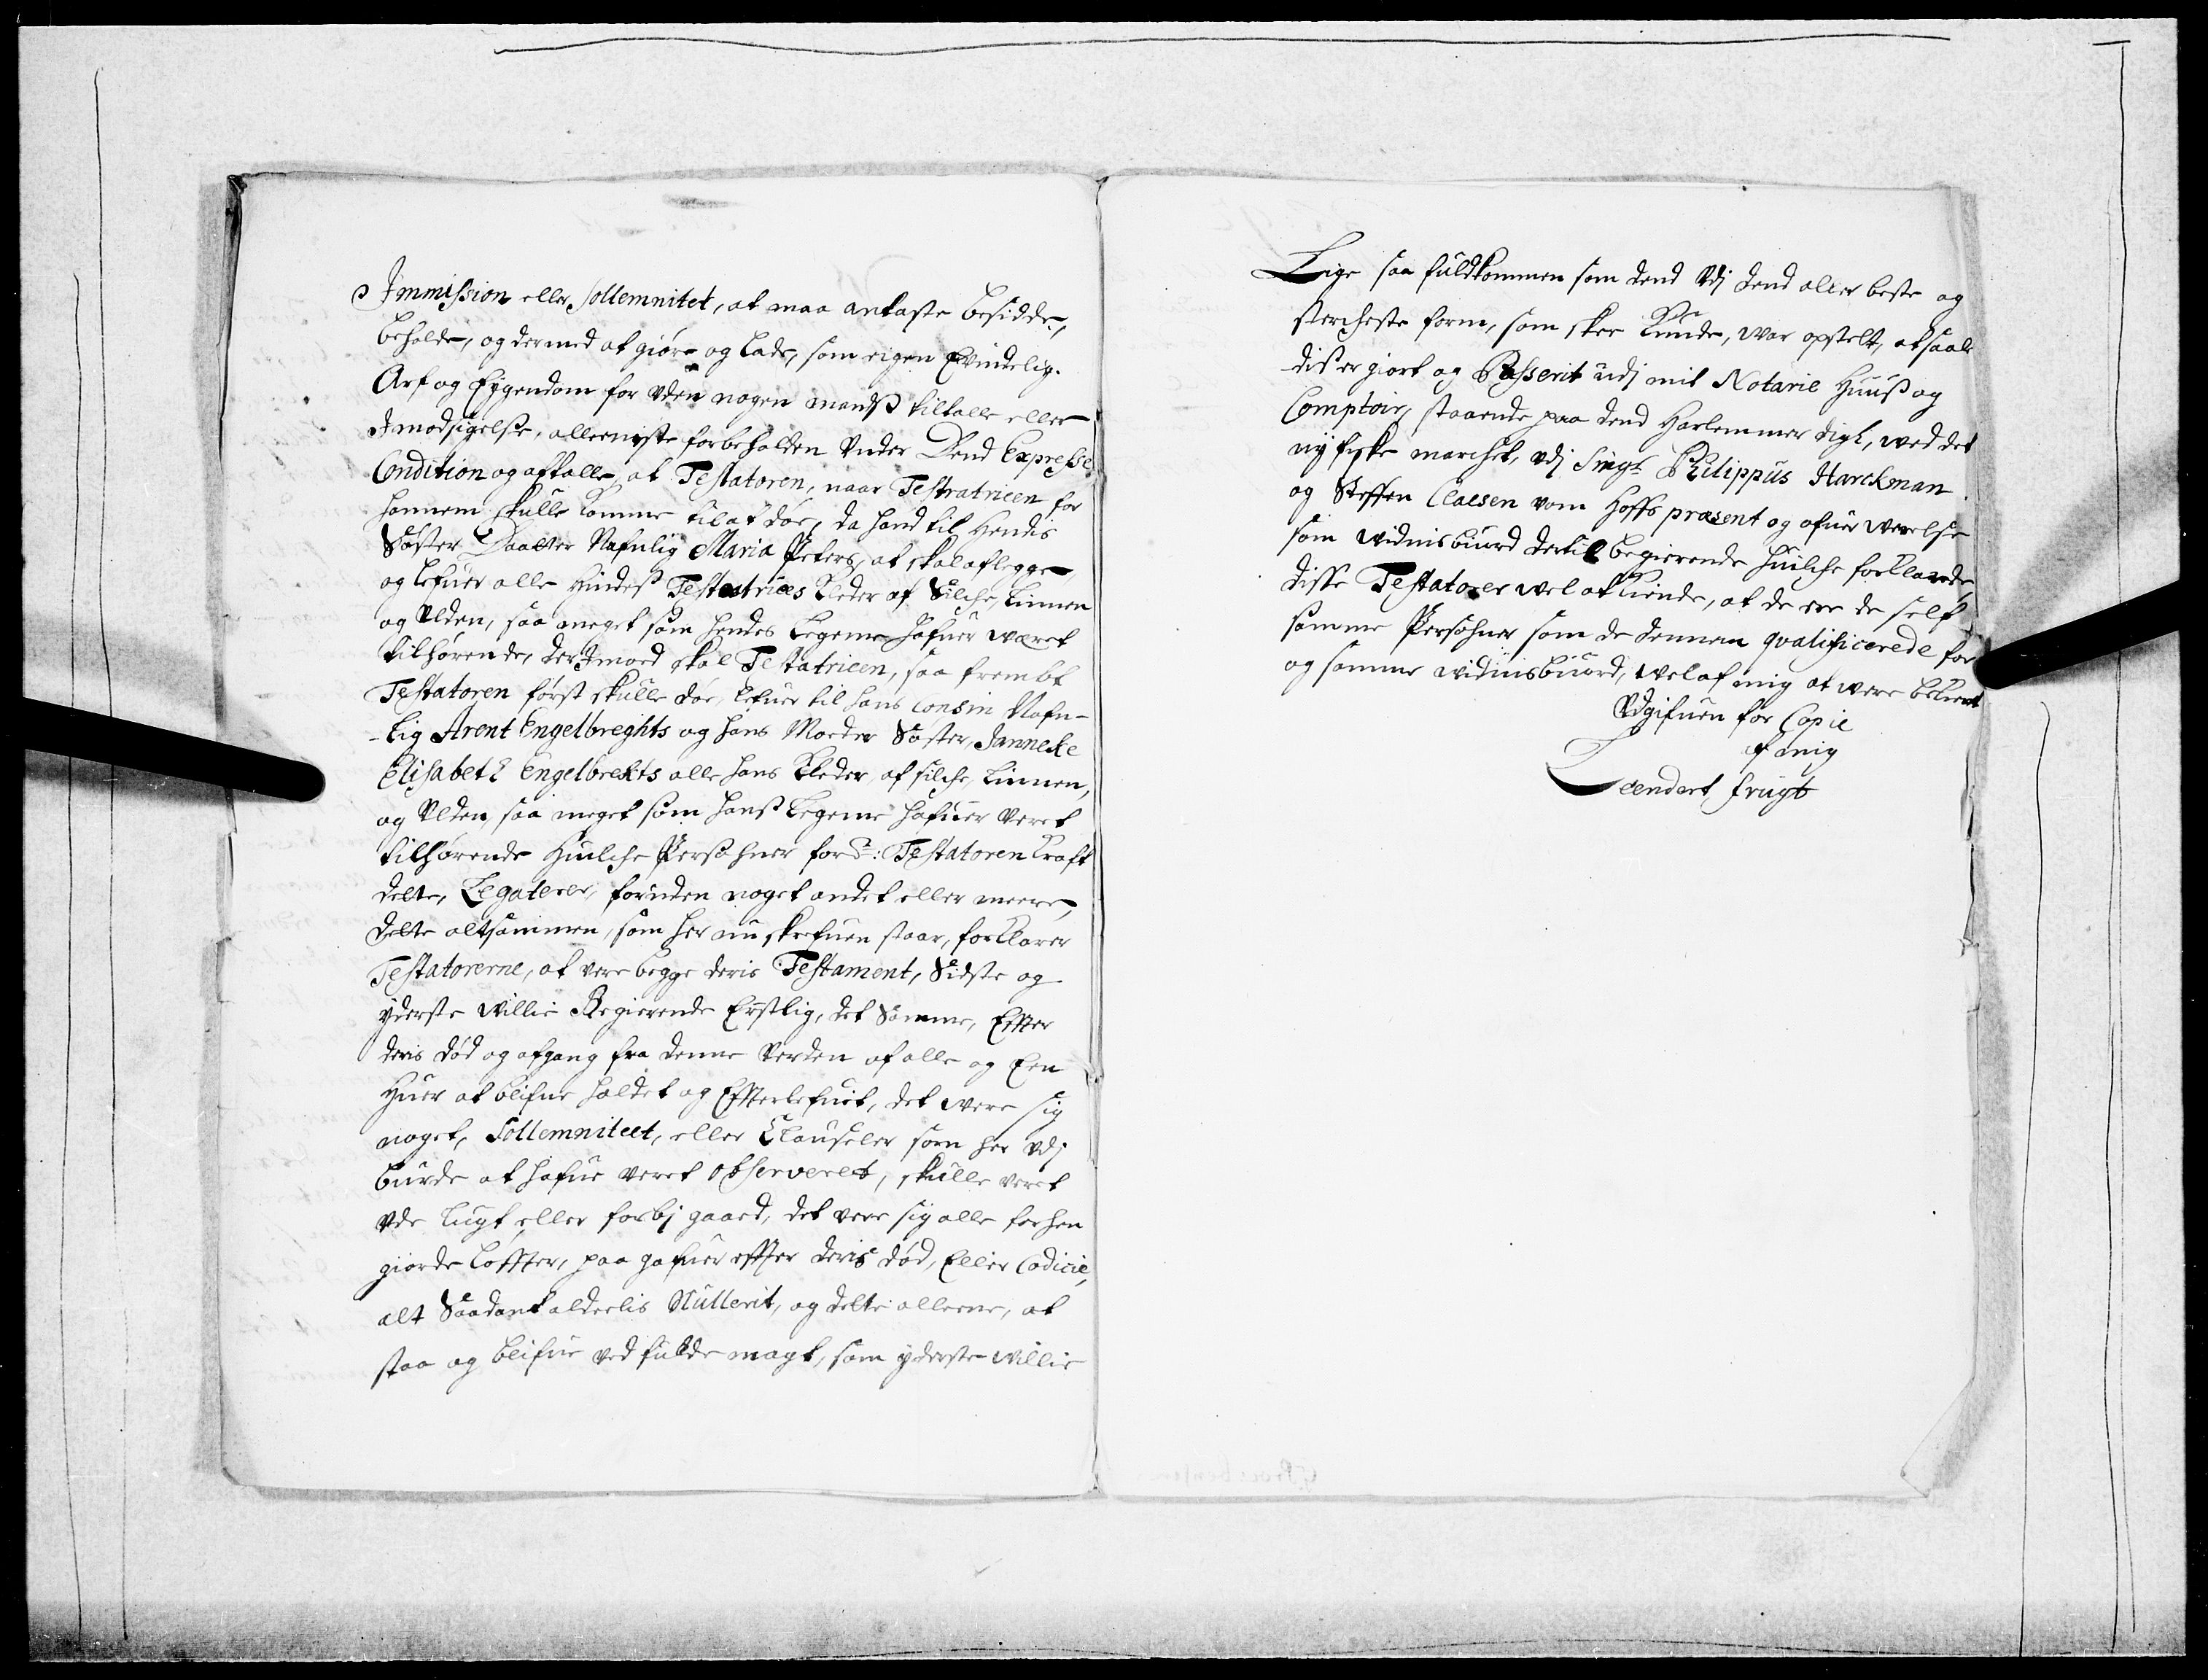 Immission eller Sollemnitet, at maa antaste besidde,
beholde, og dermed at giøre og lade, som eigen Evindelig.
Arf og Eygendom for uden nogen mandß tiltalle eller
Imodsigelse, alleeniste forbeholden under Dend Expresse
Condition og aftalle, at Testatoren, naar Testratricen for
hannem skulle komme til at døe, da hand til Hendis
Søster Daatter Nafnlig Maria Peters, at skal aflegge
og lefuer alle hindeß Testatrices kleder af Silche, linnen
og Ulden, saa meget som hendes Legeme hafuer wæret
tilhørende, der Imoed skal Testatricen, saa frembt
Testatoren først skulle døe, lefuer til hans Consin Nafn-
-lig Arent Engelbreghts og hans Moeder Søster, Janneke
Elisabeth Engelbrekts alle hans kleder, af silche, linnen,
og Ulden, saa meget som hanß Legeme hafuer veret
tilhørende huilche Persohner ford: Testatoren kraft
dette, Legaterer, foruden noget andet eller meere,
dette altsammen, som her nu skrefuen staar, forklarer
Testatorerne, at vere begge deris Testament, Sidste og
yderste willie Begierende Erstlig, det Samme, Effter
deris død og afgang fra denne Verden af alle og Een
huer at blifue holdet og Effterlefuet, det vere sig
noget, Sollemniteet, eller Clausuler som her udj
burde at hafue veret observeret, skulle veret
ude lugt eller forbj gaaed, det vere sig alle forhen
giorde løffter, paa gafuer effter deris død, Eller Codicil,
alt Saadant alderlis Nullerit, og dette alleene, at
staa og blifue ved fulde magt, som yderste willie
Lige saa fuldkommen som dend udj dend aller beste og
stercheste form, som skee kunde, war opstelt, at saale
dis er giort og Passerit udj mit Notarie Huuß og
Comptoir, staaende paa dend Harlemmer digt, wed det
ny fiske marchet, udj Sing.r Philippus Harckman
og Steffen Claesen vom Hoffs præsent og ofuerwerelse
som widnisbuurd dertil begierende huilche forklarede
disse Testatorer wel at kiende, at de ere de self
samme Persohner som de dennem qvalificerede for
og samme widnisbuurd, wel af mig at were bekient
Udgifuen for Copie
af mig
Leendert frugt